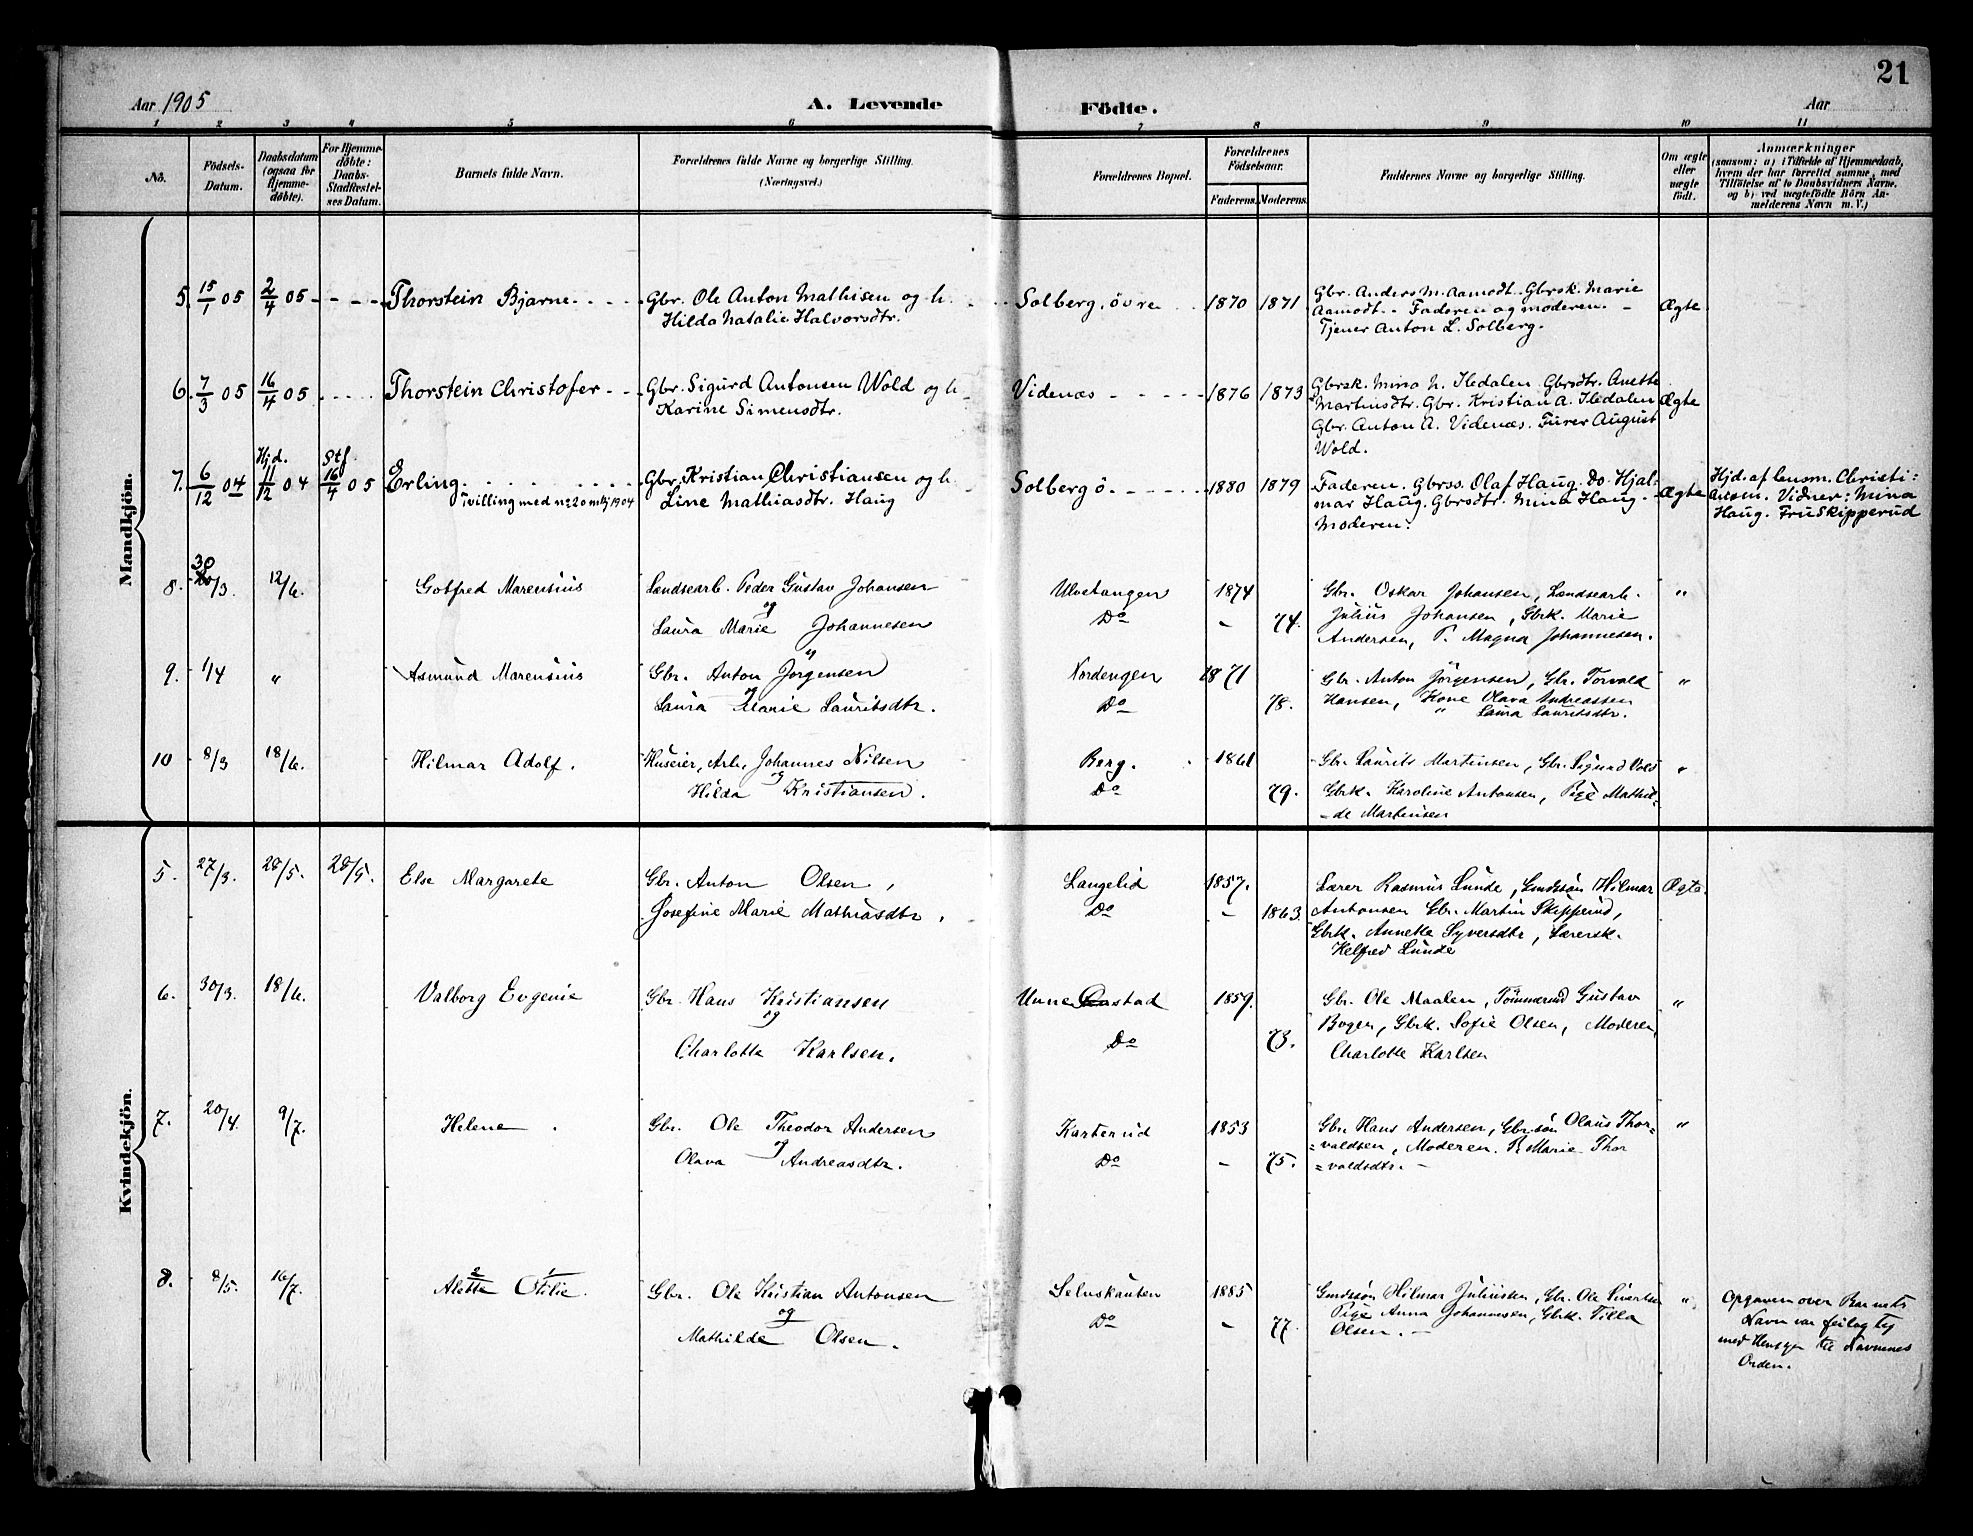 21
Aar 1905
A. Levende
Födte.
Aar
1 2 3 4 5 6 7 8 9 10 11
No.
Födsels-
Datum.
Daabsdatum
(ogsaa for
Hjemme-
döbte).
For Hjemme-
döbte:
Daabs-
Stadfæstel-
ses Datum.
Barnets fulde Navn.
Forældrenes fulde Navne og borgerlige Stilling.
(Næringsvei.)
Forældrenes Bopæl.
Forældrenes
Födselsaar.
Faderens. Moderens.
Faddernes Navne og borgerlige Stilling.
Om ægte
eller
uægte
födt.
Anmærkninger
(saasom: a) i Tilfælde af Hjemmedaab,
hvem der har forrettet samme, med
Tilföielse af to Daabsvidners Navne,
og b) ved uægtefödte Börn An-
melderens Navn m. V.)
Mandkjön.
5. 15/1 05 2/4 05 - - - - Thorstein Bjarne - - - - Gbr. Ole Anton Mathisen og h. - - Solberg, övre 1870 1871 Gbr. Anders M. Aamodt. Gbrsk. Marie
Hilda Natalie Halvorsdtr. Aamodt. - Faderen og moderen. - Ægte
Tjener Anton L. Solberg.
6. 7/3 05 16/4 05 - - - - Thorstein Christofer - - - Gbr. Sigurd Antonsen Wold og h. Videnæs - - - - - 1876 1873 Gbrsk. Mina N. Iledalen. Gbrsdtr. Anette
Karine Simensdtr. Martinsdtr. Gbr. Kristian A. Iledalen Ægte
Gbr. Anton A. Videnæs. Furer August
Wold.
Hjd. Stf.
7. 6/12 04 11/12 04 16/4 05 Erling. - - - - - - - Gbr. Kristian Christiansen og h. Solberg ö. - - - - - 1880 1879 Faderen. Gbrss. Olaf Haug. Do Hjal-
Tvilling med no 20 mkj 1904 Line Mathiasdtr. Haug mar Haug. Gbrsdtr. Mina Haug - Ægte
Moderen.
Hjd. af lensm. Christi:
ansen. Vidner: Mina
Haug. Fru Skipperud
8. 30/3. 12/6. Gotfred Marensius Landsearb. Peder Gustav Johansen Ulvetangen 1874 Gbr. Oskar Johansen, Landsearb. "
og
Laura Marie Johannesen Do - 74. Julius Johansen, Gbrk. Marie
Andersen, P. Magna Johannesen.
9. 1/4 " Asmund Marensius Gbr. Anton Jörgensen Nordengen 1871 Gbr. Anton Jörgensen, Gbr. Torvald "
og
Laura Marie Lauritsdtr. Do 78. Hansen, Kone Olava Andreassen
" Laura Lauritsdtr.
10 8/3 18/6. Hilmar Adolf. Huseier, Arb. Johannes Nilsen Berg. 1861 Gbr. Laurits Martinsen, Gbr. Sigurd Vold "
og
Hilda Kristiansen. Do 79. Gbrk. Karoline Antonsen, Pige Mathil-
-de Martinsen
Kvindekjön.
5. 27/3. 28/5. 28/5. Else Margarete Gbr. Anton Olsen, Langelid 1857. Lærer Rasmus Lunde, Gmdssön Hilmar Ægte
Josefine Marie Mathiasdtr. Do - 1863. Antonsen Gbr. Martin Skipperud,
Gbrk. Anneke Syversdtr, Lærersk.
Helfred Lunde
6. 30/3. 18/6. Valborg Evgenie Gbr. Hans Kristiansen Unnestad 1859. Gbr. Ole Maalen, Tömmermd Gustav "
og
Charlotte Karlsen. Do 73. Bogen, Gbrk. Sofie Olsen, Moderen,
Charlotte Karlsen
7. 20/4. 9/7. Helene Gbr. Ole Theodor Andersen Karterud 1853 Gbr. Hans Andersen, Gbr. sön Olaus Thor= "
og
Olava Andreasdtr. Do - 75. =valdsen, Moderen. P. Marie Thor
=valdsdtr. -
8. 8/5. 16/7. Alette Otilie. Gbr. Ole Kristian Antonsen Selnskauten 1885 Gmdssön Hilmar Juliussen, Gbr. Ole Sivertsen "
2 1
og
Mathilde Olsen. Do - 77. Pige Anna Johannesen, Gbrk. Tilla
Olsen. -
Opgaven over Barnets
Navn var feilagtig
med Hensyn til Navnenes
Orden.